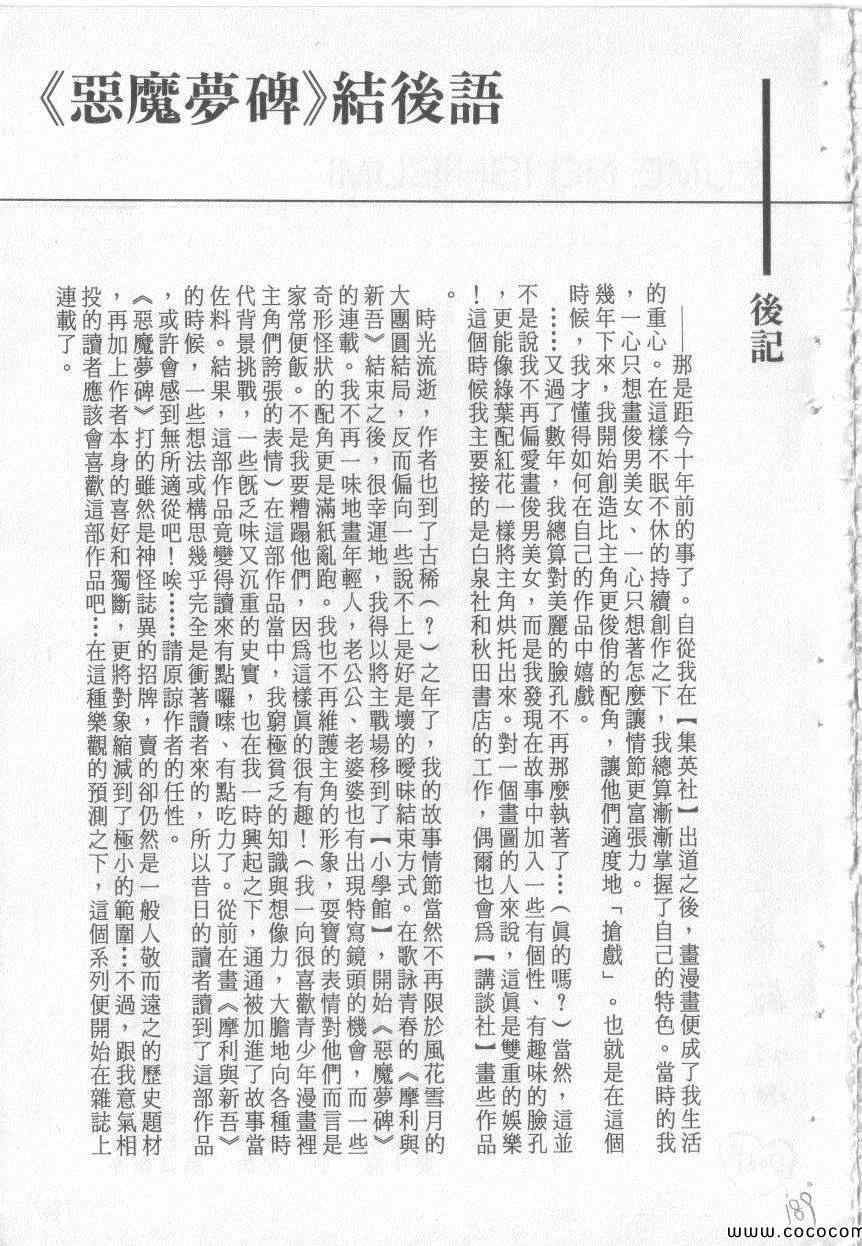 《惡魔夢碑》結後語
後記
──那是距今十年前的事了。自從我在【集英社】出道之後，畫漫畫便成了我生活
的重心。在這樣不眠不休的持續創作之下，我總算漸漸掌握了自己的特色。當時的我
，一心只想畫俊男美女、一心只想著怎麼讓情節更富張力。
幾年下來，我開始創造比主角更俊俏的配角，讓他們適度地「搶戲」。也就是在這個
時候，我才懂得如何在自己的作品中嬉戲。
……又過了數年，我總算對美麗的臉孔不再那麼執著了…（眞的嗎？）當然，這並
不是說我不再偏愛畫俊男美女，而是我發現在故事中加入一些有個性、有趣味的臉孔
，更能像綠葉配紅花一樣將主角烘托出來。對一個畫圖的人來說，這眞是雙重的娛樂
！這個時候我主要接的是白泉社和秋田書店的工作，偶爾也會爲【講談社】畫些作品
。
時光流逝，作者也到了古稀（？）之年了，我的故事情節當然不再限於風花雪月的
大團圓結局，反而偏向一些說不上是好是壞的曖昧結束方式。在歌詠青春的《摩利與
新吾》結束之後，很幸運地，我得以將主戰場移到了【小學館】，開始《惡魔夢碑》
的連載。我不再一味地畫年輕人，老公公、老婆婆也有出現特寫鏡頭的機會，而一些
奇形怪狀的配角更是滿紙亂跑。我也不再維護主角的形象，耍寶的表情對他們而言是
家常便飯。不是我要糟蹋他們，因爲這樣眞的很有趣！（我一向很喜歡青少年漫畫裡
主角們誇張的表情）在這部作品當中，我窮極貧乏的知識與想像力，大膽地向各種時
代背景挑戰，一些旣乏味又沉重的史實，也在我一時興起之下，通通被加進了故事當
佐料。結果，這部作品竟變得讀來有點囉嗦、有點吃力了。從前在畫《摩利與新吾》
的時候，一些想法或構思幾乎完全是衝著讀者來的，所以昔日的讀者讀到了這部作品
，或許會感到無所適從吧！唉……請原諒作者的任性。
《惡魔夢碑》打的雖然是神怪誌異的招牌，賣的卻仍然是一般人敬而遠之的歷史題材
，再加上作者本身的喜好和獨斷，更將對象縮減到了極小的範圍…不過，跟我意氣相
投的讀者應該會喜歡這部作品吧…在這種樂觀的預測之下，這個系列便開始在雜誌上
連載了。
189
www.cococom